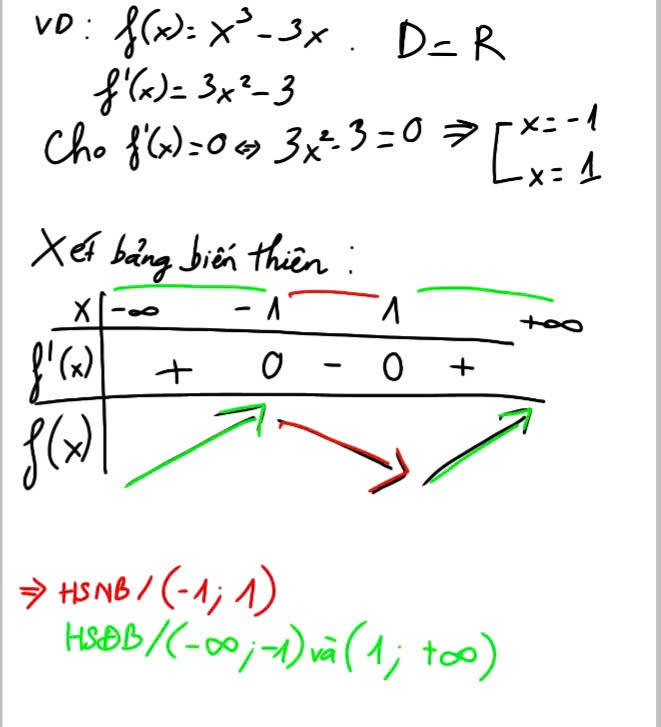 VD: f(x) = x³ - 3x. D = R
f'(x) = 3x² - 3
Cho f'(x) = 0 ⇔ 3x² - 3 = 0 ⇒ [ x = -1
x = 1
Xét bảng biến thiên:
x | -∞ -1 1 +∞
f'(x) | + 0 - 0 +
f(x) | ↗ ↘ ↗
⇒ HSNB/(-1; 1)
HSĐB/(-∞; -1) và (1; +∞)